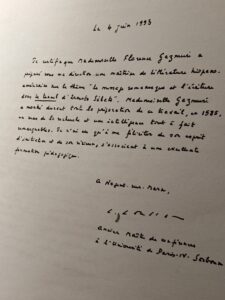 Le 4 juin 1993
Je certifie que Mademoiselle Florence Gazmuri a
préparé sous ma direction une maîtrise de littérature hispano-
américaine sur le thème " le message et l'écriture
dans d'Ernesto Sábato". Mademoiselle Gazmuri
a montré durant toute la préparation de ce travail, en 1985,
un sens de la recherche et une intelligence tout à fait
remarquables. Je n'ai eu qu'à me féliciter de son esprit
d'initiative et de son sérieux, s'associant à une excellente
formation pédagogique.
A Nogent-sur-Marne,
ancien Maître de conférences
à l'Université de Paris-IV Sorbonne